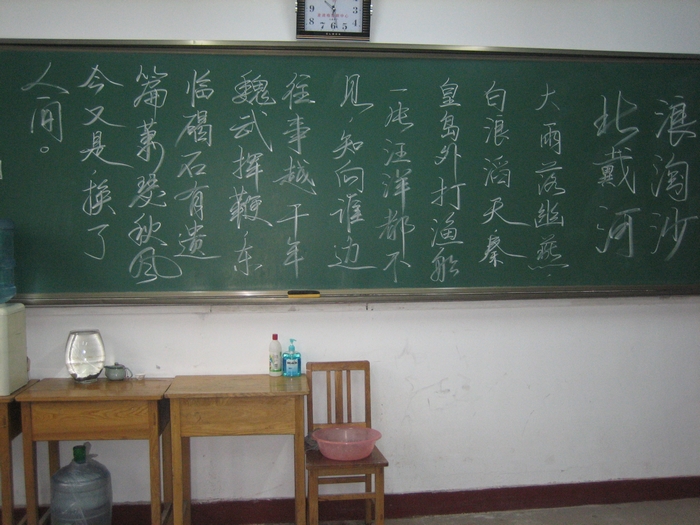 浪淘沙
北戴河
大雨落幽燕
白浪滔天秦
皇岛外打渔船
一片汪洋都不
见,知向谁边
往事越千年
魏武挥鞭东
临碣石有遗
篇萧瑟秋风
今又是换了
人间。